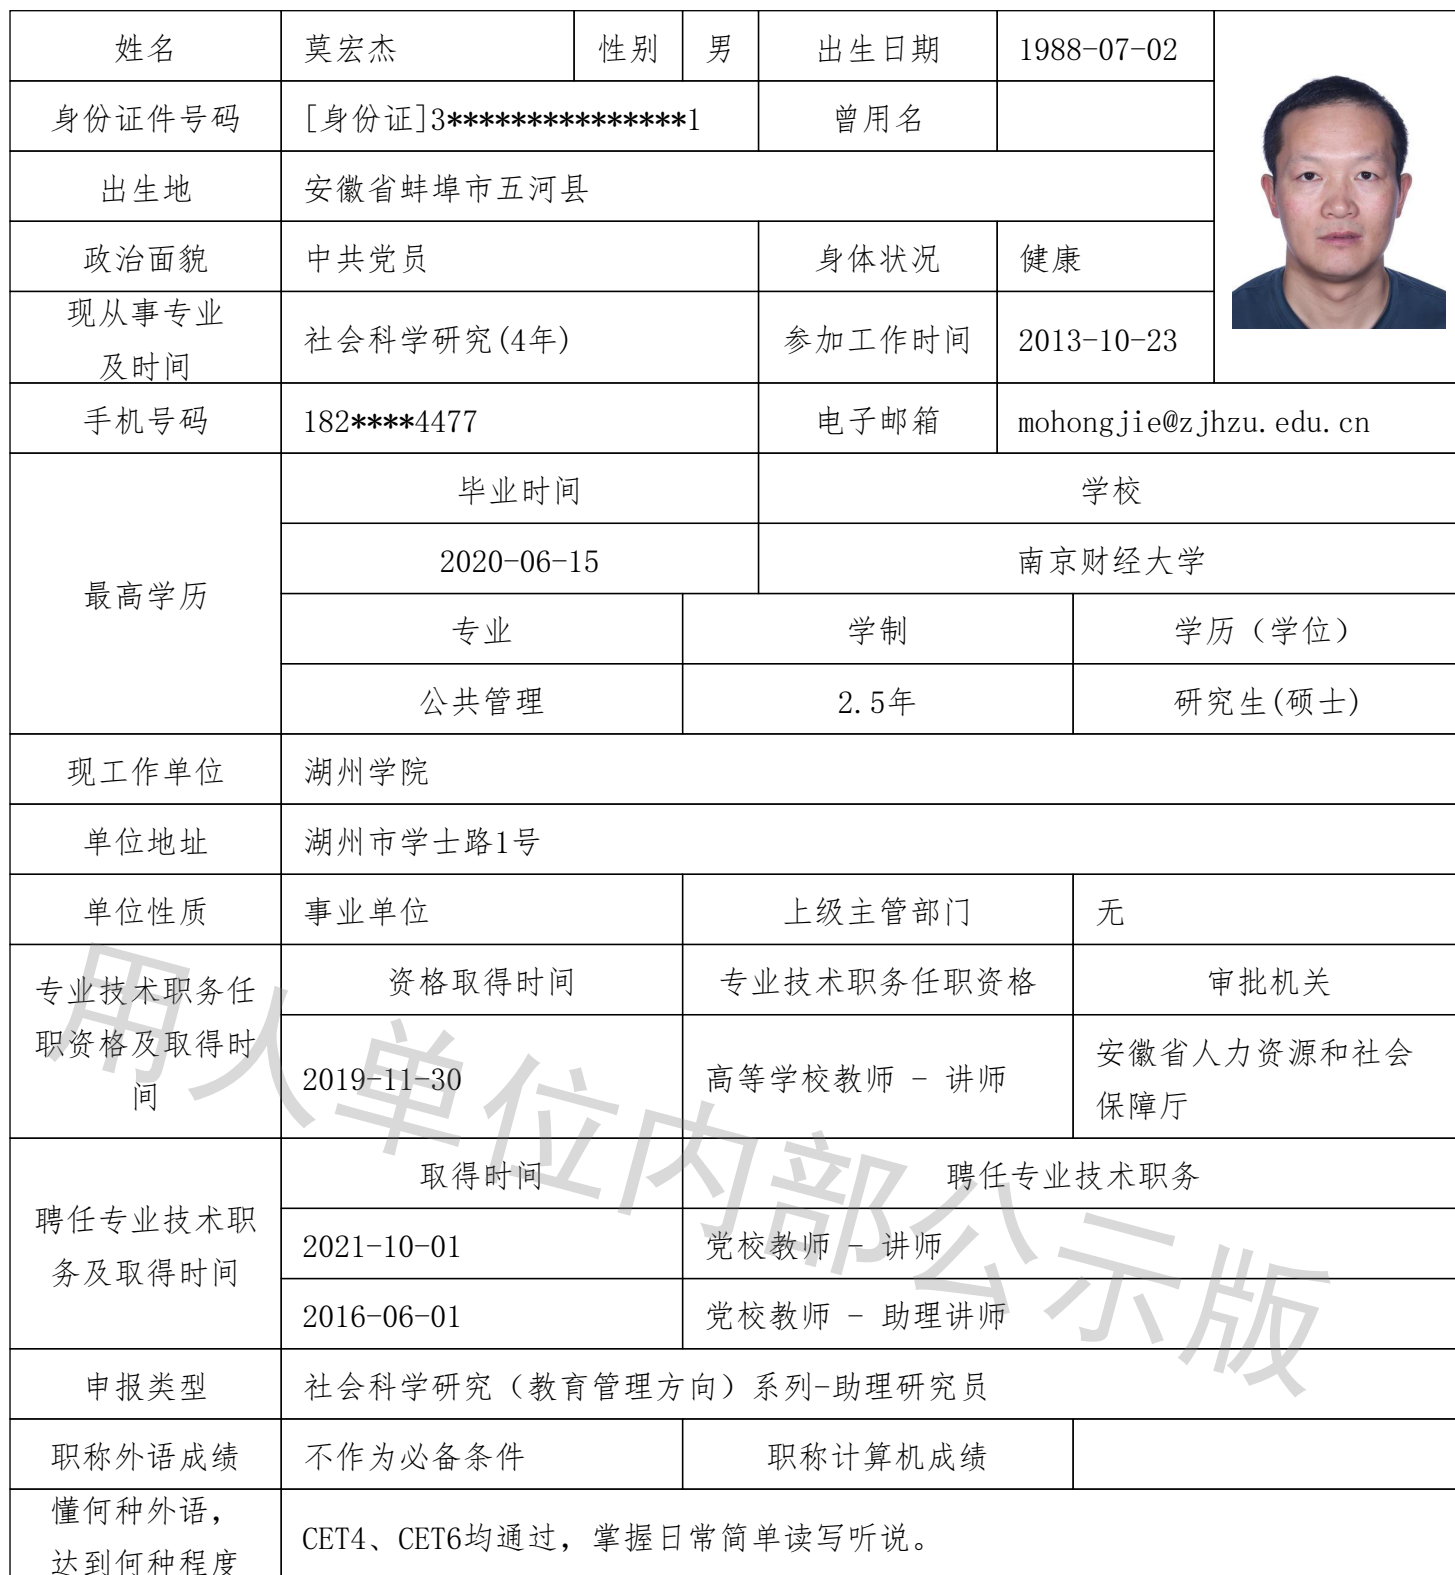 姓名 莫宏杰 性别 男 出生日期 1988-07-02
身份证件号码 [身份证]3***************1 曾用名
出生地 安徽省蚌埠市五河县
政治面貌 中共党员 身体状况 健康
现从事专业
及时间 社会科学研究(4年) 参加工作时间 2013-10-23
手机号码 182****4477 电子邮箱 mohongjie@zjhzu.edu.cn
最高学历
毕业时间 学校
2020-06-15 南京财经大学
专业 学制 学历（学位）
公共管理 2.5年 研究生(硕士)
现工作单位 湖州学院
单位地址 湖州市学士路1号
单位性质 事业单位 上级主管部门 无
专业技术职务任
职资格及取得时
间
资格取得时间 专业技术职务任职资格 审批机关
2019-11-30 高等学校教师 - 讲师 安徽省人力资源和社会
保障厅
聘任专业技术职
务及取得时间
取得时间 聘任专业技术职务
2021-10-01 党校教师 - 讲师
2016-06-01 党校教师 - 助理讲师
申报类型 社会科学研究（教育管理方向）系列-助理研究员
职称外语成绩 不作为必备条件 职称计算机成绩
懂何种外语，
达到何种程度 CET4、CET6均通过，掌握日常简单读写听说。
用人单位内部公示版